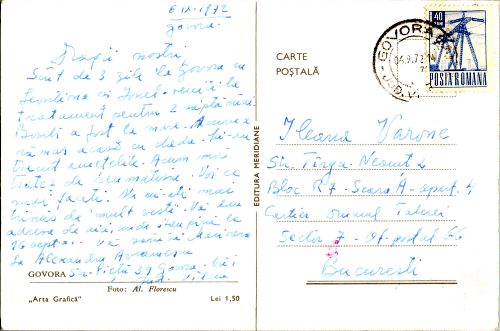 6 IX 1972
Govora
Dragii noștri
Sînt de 3 zile la Govora cu
Leontina și Ionel veniți la
tratament pentru 2 săptămîni
a fost la mare. Acum a
rămas acasă cu dada. Și-au
trecut amețelile. Acum mai
Voi ce
mai faceți. Nu mi-ați mai
trimis de mult vești. Vă dau
adresa de aici unde stau pînă pe
16 sept.
la Alexandru
GOVORA Str. Victor 39 Govora-Băi
jud. Vîlcea
Foto: Al. Florescu
„Arta Grafică" Lei 1,50
EDITURA MERIDIANE
CARTE
POȘTALĂ
GOVORA
04.9.72
JUD. V
40
BANI
POSTA ROMANA
Ileana Varone
Str. Tîrgu-Neamț 2
Bloc R7 - Scara A - apart. 4
Cartier Drumul Taberei
Sector 7 - Of. poștal 66
București